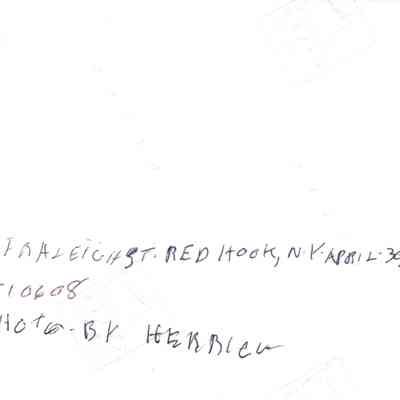 FRALEIGH ST. RED HOOK, N.Y. APRIL 30,
10608
HOTO-BY HERRICK